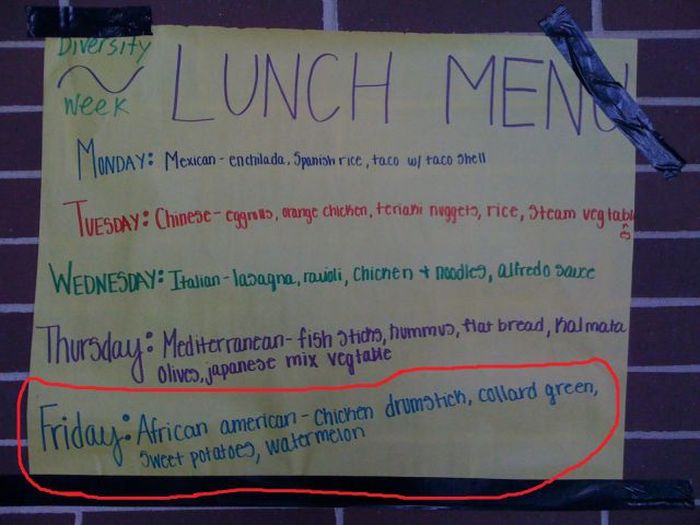 Diversity
Week
LUNCH MENU
MONDAY: Mexican - enchilada, Spanish rice, taco w/ taco shell
TUESDAY: Chinese - eggrolls, orange chicken, teriaki nuggets, rice, steam vegtables
WEDNESDAY: Italian - lasagna, ravioli, chicken + noodles, alfredo sauce
Thursday: Mediterranean - fish sticks, hummus, flat bread, kalmata
olives, japanese mix vegtable
Friday: African american - chicken drumstick, collard green,
sweet potatoes, watermelon